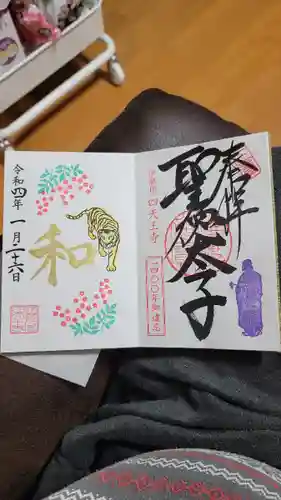 奉拝
聖徳太子
四天王寺
一四〇〇年御遠忌
和
令和四年一月二十六日